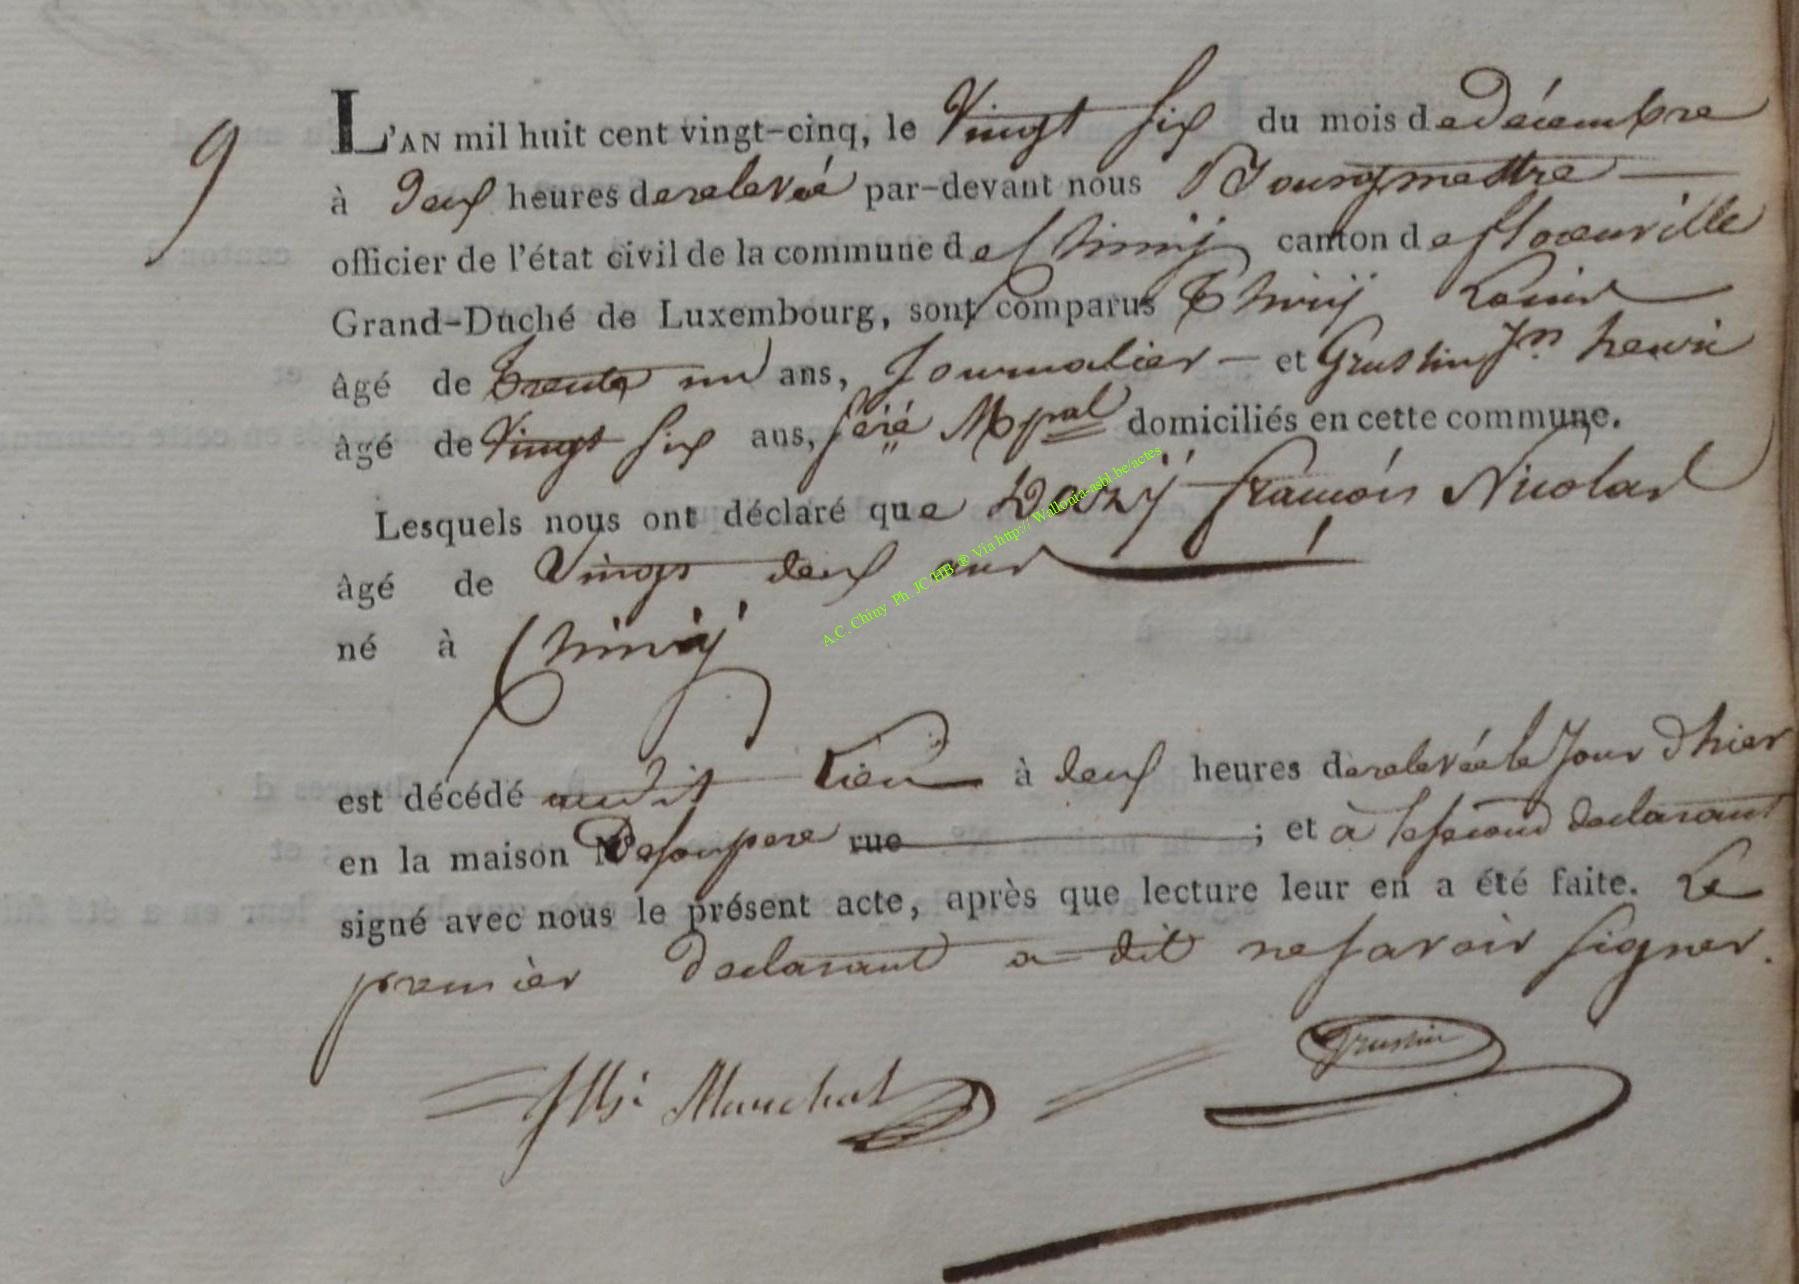 9
L'AN mil huit cent vingt-cinq, le Vingt six du mois de décembre
à deux heures de relevée par-devant nous Bourgmestre
officier de l'état civil de la commune de Chinij canton de florenville
Grand-Duché de Luxembourg, sont comparus Thirij Louis
âgé de trente un ans, Journalier et Grustin Jn henri
âgé de Vingt six ans, secré Mpal domiciliés en cette commune.
Lesquels nous ont déclaré que françois Nicolas
âgé de Vingt deux ans
né à Chinij
est décédé audit Lieu à deux heures de relevée le Jour d'hier
en la maison N° de son pere rue ; et à le second declarant
signé avec nous le présent acte, après que lecture leur en a été faite. Le
premier declarant a dit ne savoir signer.
Grustin
Marchal
A.C. Chiny Ph. JC/HB ® Via http://Wallonia-asbl.be/actes